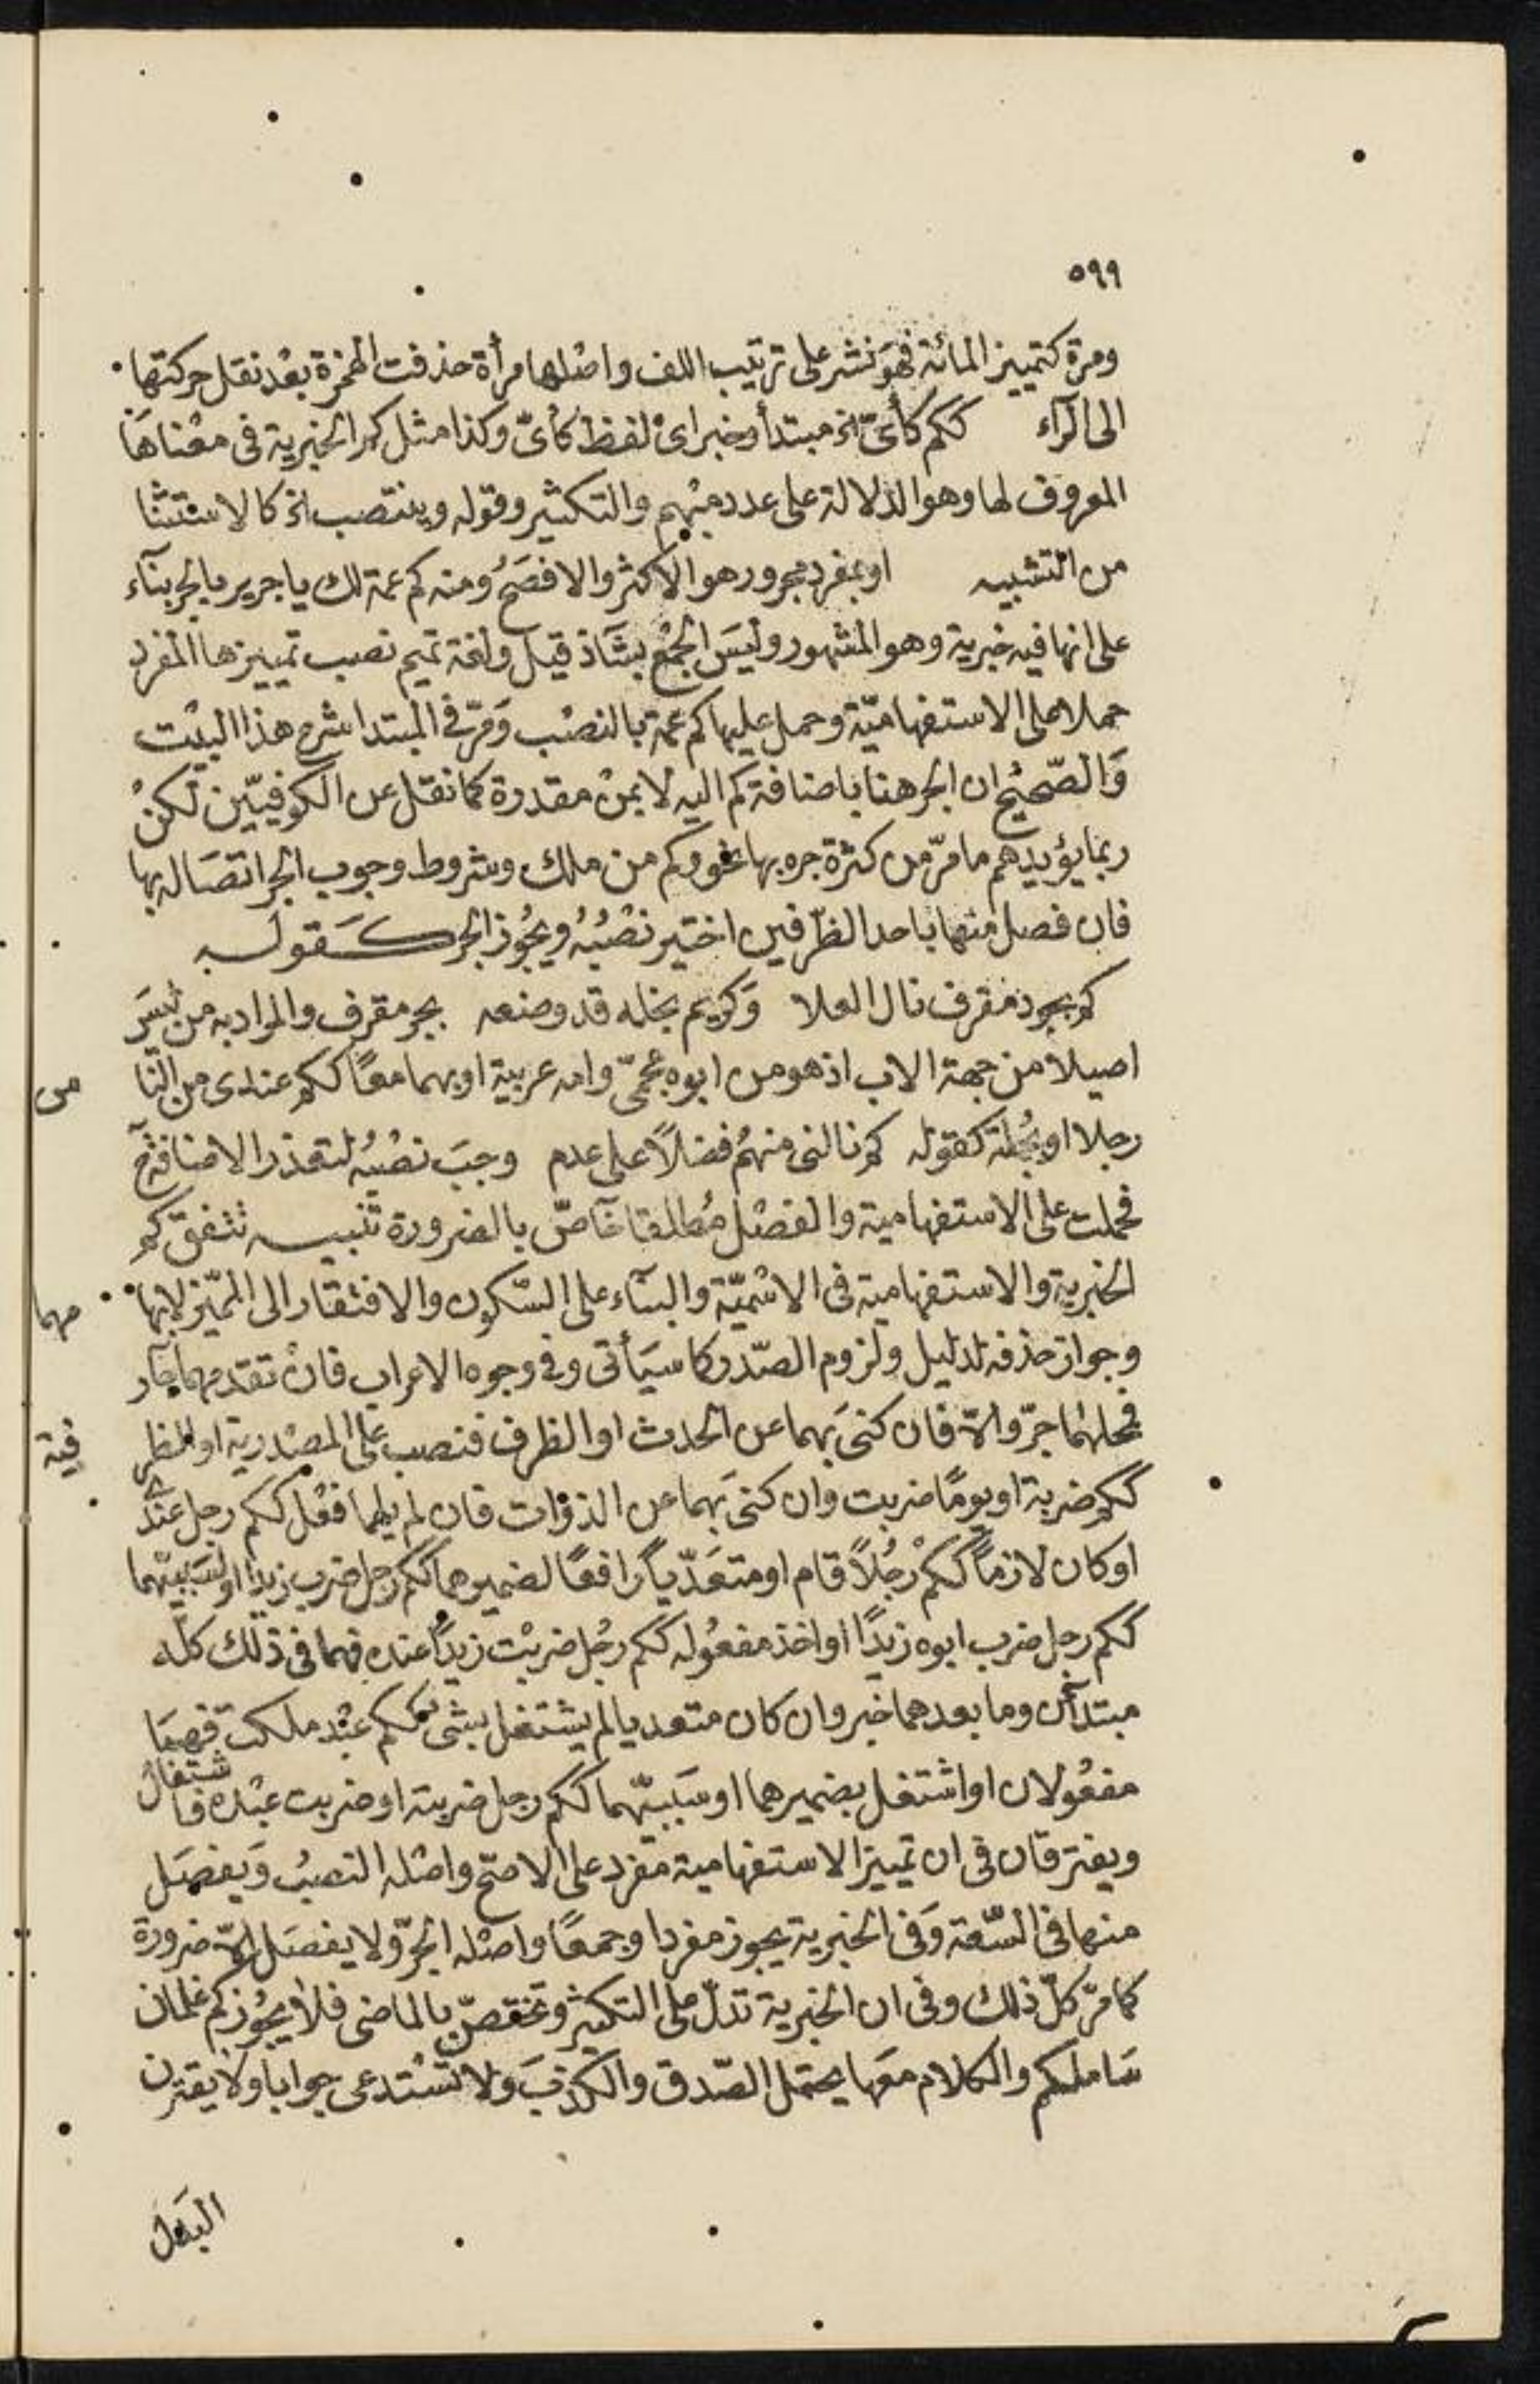 ٥٩٩
ومرة كتمييز المائة فهو نشر على ترتيب اللف واصلها مرأة حذفت الهمزة بعْد نقل حركتها
الى الرآء ككم كأىّ الخ مبتدأ وخبر اىْ لفظ كأىّ وكذا مثل كم الخبرية فى معْناهَا
المعروف لها وهو الدلالة على عدد مبْهم والتكثير وقوله وينتصب الخ كالاستثنا
من التشبيه او بمفرد مجرور هو الاكثر والافصَحُ ومنه كم عمة لك يا جرير بالجر بنآء
على انها فيه خبرية وهو المشهور وليسَ الجمْع بشَاذ قيل ولغة تميم نصب تمييزها المفرد
حملا على الاستفهاميّة وحمل عليها كم عمة بالنصْب وَمرّ فى المبتدا شرح هذا البيْت
وَالصّحيْح ان الجر هنا باضافة كم اليه لا بمنْ مقدرة كما نقل عن الكوفييّن لكنْ
ربما يؤيدهم ما مرّ من كثرة جره بها نحو وكم من ملك وشروط وجوب الجر اتصَاله بها
فان فصل منها باحد الظرفين اختير نصْبُهُ ويجُوز الجر كَقولَه
كم بجود مقرف نال العلا وَكريم بخله قد وضعه بجر مقرف والمراد به من ليسَ
اصيلا من جهة الاب اذ هو من ابوه عجمىّ وامه عربية او بهما معًا ككم عندى من النا
س
رجلا او بجُملة كقوله كم نالنى منهمُ فضلاً على عدم وجبَ نصْبُه لتعذر الاضافة ح
فحملت على الاستفهامية والفصْل مُطلقا خآصّ بالضرورة تنبيه تتفق كم
الخبرية والاستفهامية فى الاسْميّة والبنآء على السّكون والافتقار الى المميّز لابها
مهما
وجواز حذفه لدليل ولزوم الصّدر كما سيَأتى وفى وجوه الاعراب فانْ تقدمهما جآر
فمحلهُما جرّ والاّ فان كنىَ بَهما عن الحدث او الظرف فنصب على المصْدرية او الظر
فية
ككم ضربة او يومًا ضربت وان كنىَ بَهما عن الذوات فان لم يلهما فعْل ككم رجل عنْدك
او كان لازمًا ككمْ رجُلاً قام او متعَدّيًا رافعًا لضميرهما ككم رجل ضرب زيدًا او لسَببيّهما
ككم رجل ضرب ابوه زيدًا او اخذ مفعُوله ككم رجُل ضربْت زيدًا عنده فهما فى ذلك كلّه
مبتدآن وما بعدهما خبر وان كان متعديا لم يشتغل بشى ككم عبْد ملكت فهمَا
مفعُولان او اشتغل بضميرهما او سَببيّهما ككم رجل ضربته او ضربت عبْده فاشتغال
ويفترقان فى ان تمييز الاستفهامية مفرد على الاصحّ واصْله النصبُ وَيفصَل
منها فى السّعة وَفى الخبرية يجوز مفردا وجمعًا واصْله الجرّ ولا يفصَل الاّ ضرورة
كما مرّ كلّ ذلك وفى ان الخبرية تدلّ على التكثير وتختصّ بالماضى فلا يجُوز كم غلمان
سَاملكم والكلام معَها يحتمل الصّدق والكذبَ ولا تسْتدعى جوابا ولا يقترن
البَدل